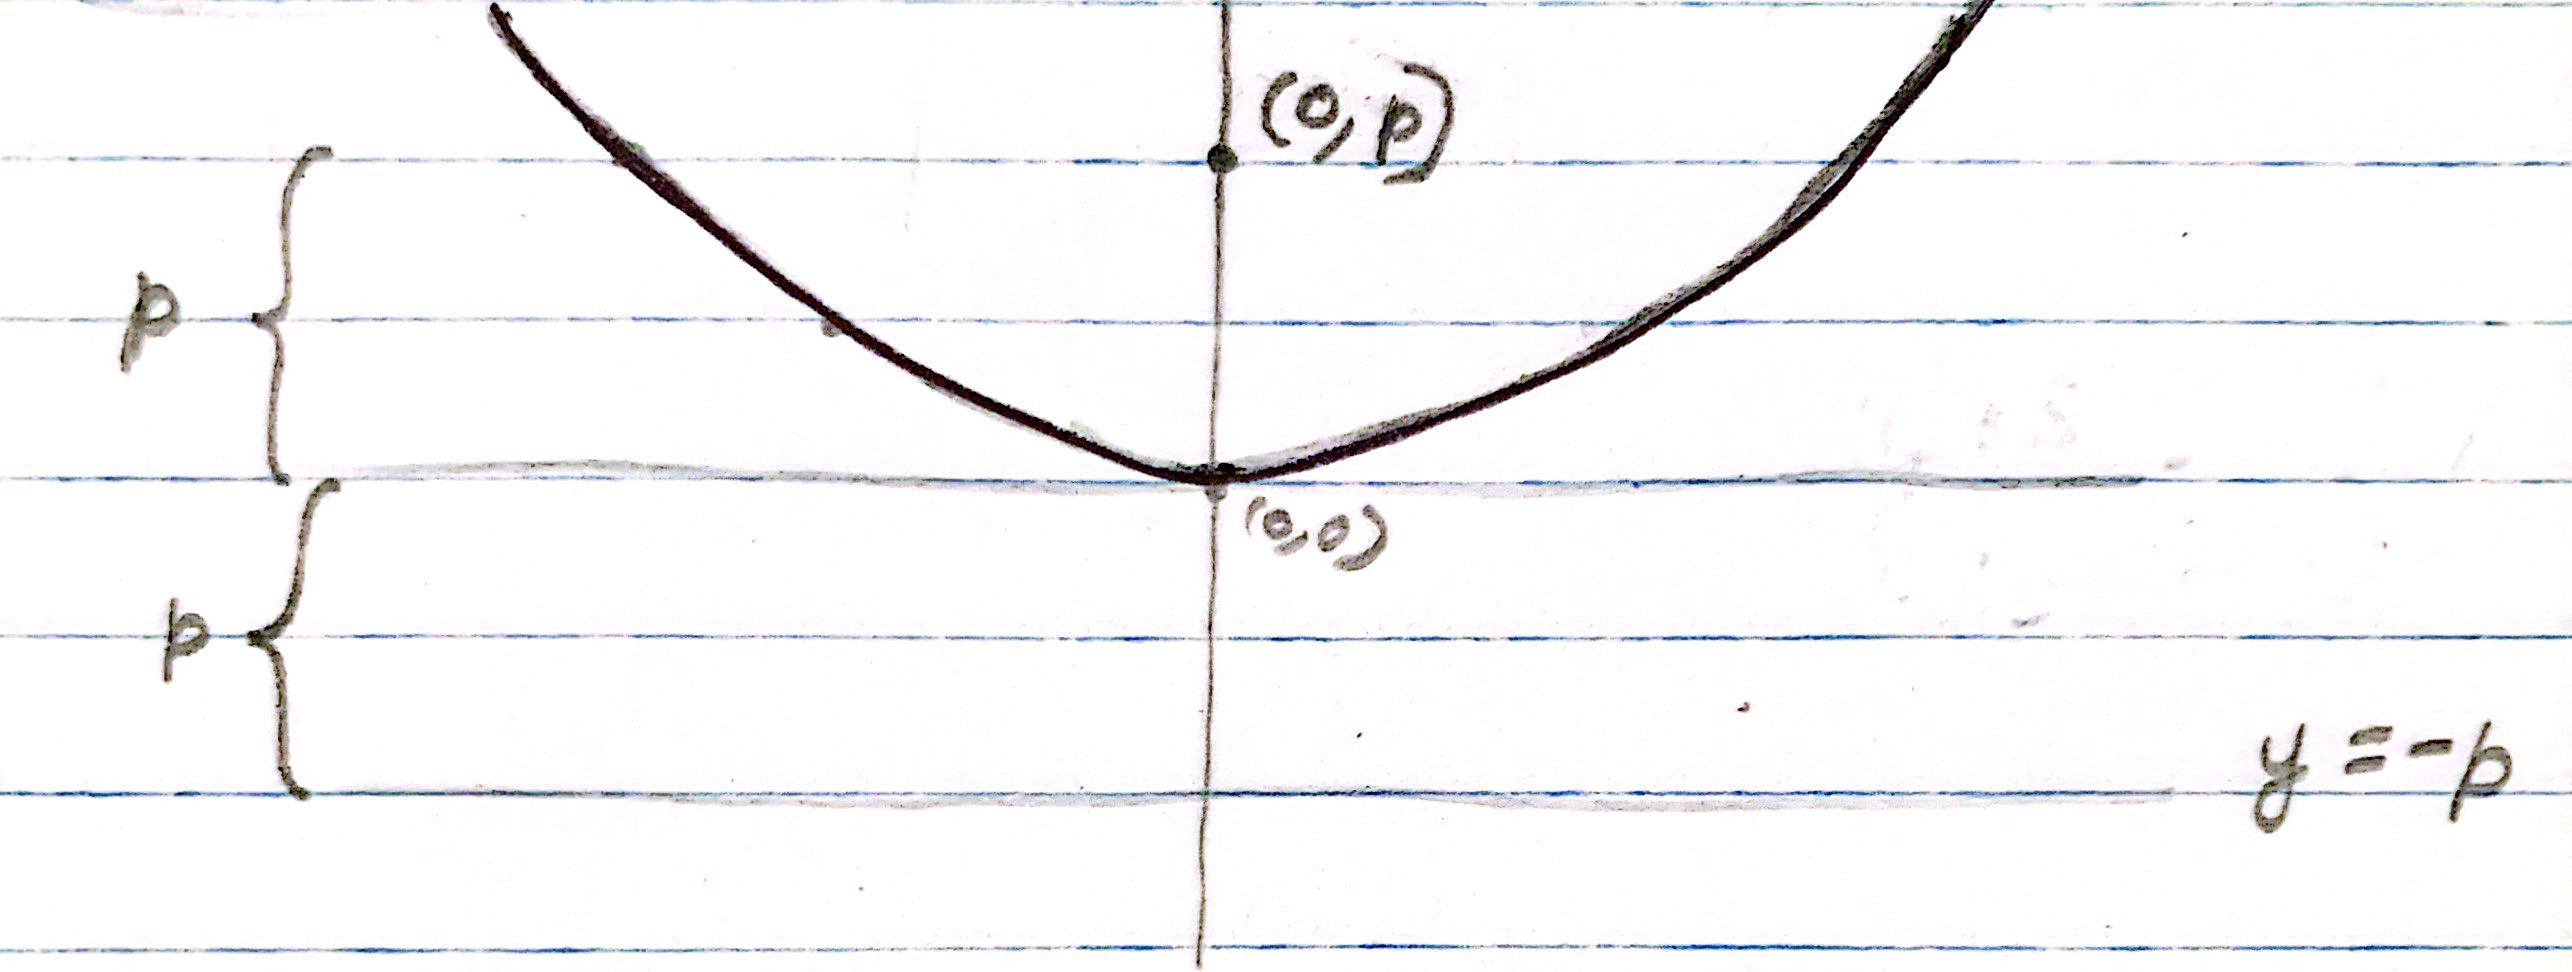 (0,p)
p
(0,0)
p
y=-p